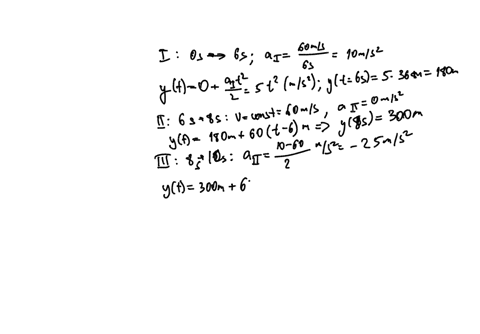 I : 0s → 6s ; a_I = 60m/s / 6s = 10m/s²
y(t) = 0 + a_I t² / 2 = 5t² (m/s²) ; y(t=6s) = 5·36m = 180m
II : 6s → 8s : v = const = 60m/s , a_II = 0m/s²
y(t) = 180m + 60(t-6)m => y(8s) = 300m
III : 8s → 10s : a_II = 10-60 / 2 m/s² = -25m/s²
y(t) = 300m + 6